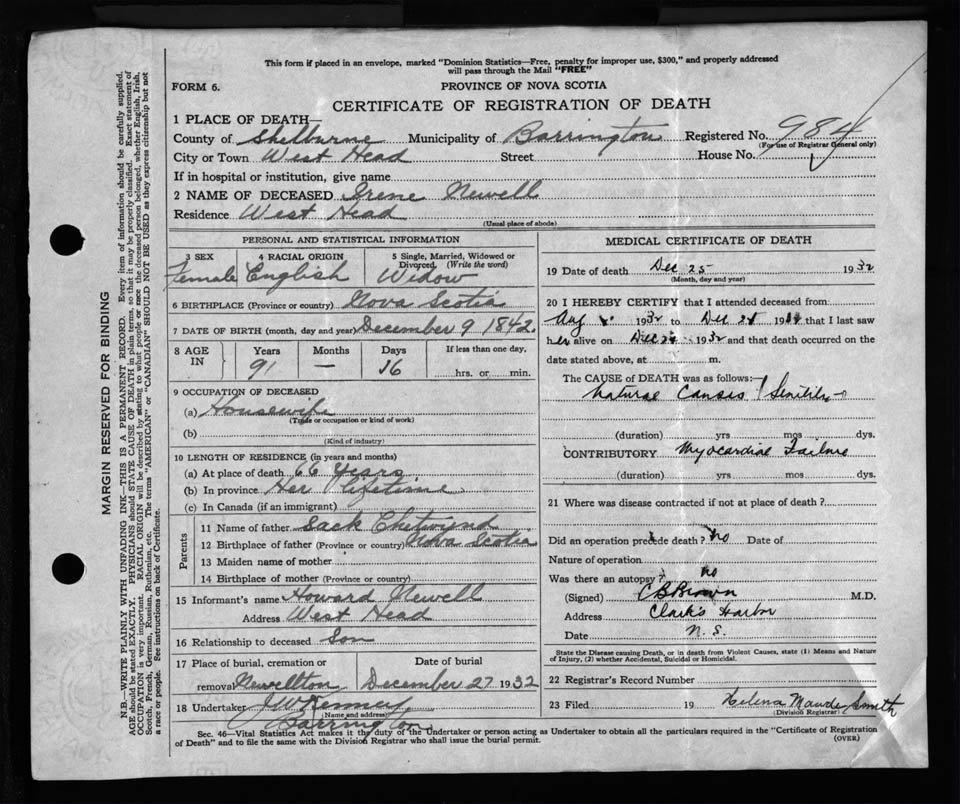 This form if placed in an envelope, marked "Dominion Statistics—Free, penalty for improper use, $300," and properly addressed
will pass through the Mail "FREE"
FORM 6.
PROVINCE OF NOVA SCOTIA
CERTIFICATE OF REGISTRATION OF DEATH
1 PLACE OF DEATH—
County of Shelburne Municipality of Barrington Registered No. 984
(For use of Registrar General only)
City or Town West Head Street House No.
If in hospital or institution, give name
2 NAME OF DECEASED Irene Newell
Residence West Head
(Usual place of abode)
PERSONAL AND STATISTICAL INFORMATION
3 SEX 4 RACIAL ORIGIN 5 Single, Married, Widowed or
Divorced. (Write the word)
Female English Widow
6 BIRTHPLACE (Province or country) Nova Scotia
7 DATE OF BIRTH (month, day and year) December 9 1842.
8 AGE IN Years Months Days If less than one day,
91 — 16 hrs. or min.
9 OCCUPATION OF DECEASED
(a) Housewife
(Trade or occupation or kind of work)
(b)
(Kind of industry)
10 LENGTH OF RESIDENCE (in years and months)
(a) At place of death 66 Years
(b) In province Her Lifetime
(c) In Canada (if an immigrant)
Parents
11 Name of father Sack Chetwynd
12 Birthplace of father (Province or country) Nova Scotia
13 Maiden name of mother
14 Birthplace of mother (Province or country)
15 Informant's name Howard Newell
Address West Head
16 Relationship to deceased Son
17 Place of burial, cremation or Date of burial
removal Newellton December 27 1932
18 Undertaker J W Kenney
(Name and address)
Barrington
MEDICAL CERTIFICATE OF DEATH
19 Date of death Dec 25 1932
(Month, day and year)
20 I HEREBY CERTIFY that I attended deceased from
Aug 1932 to Dec 1932 that I last saw
her alive on Dec 1932 and that death occurred on the
date stated above, at m.
The CAUSE of DEATH was as follows:—
Natural Causes / Senility
(duration) yrs mos dys.
CONTRIBUTORY Myocardial Failure
(duration) yrs. mos. dys.
21 Where was disease contracted if not at place of death?
Did an operation precede death? No Date of
Nature of operation
Was there an autopsy? no
(Signed) C B Brown M.D.
Address Clark's Harbor
Date N. S.
State the Disease causing Death, or in death from Violent Causes, state (1) Means and Nature
of Injury, (2) whether Accidental, Suicidal or Homicidal.
22 Registrar's Record Number
23 Filed 19 Helena Maude Smith
(Division Registrar)
Sec. 46—Vital Statistics Act makes it the duty of the Undertaker or person acting as Undertaker to obtain all the particulars required in the "Certificate of Registration
of Death" and to file the same with the Division Registrar who shall issue the burial permit.
(OVER)
MARGIN RESERVED FOR BINDING
N.B.—WRITE PLAINLY WITH UNFADING INK—THIS IS A PERMANENT RECORD. Every item of information should be carefully supplied.
AGE should be stated EXACTLY. PHYSICIANS should STATE CAUSE OF DEATH in plain terms, so that it may be properly classified. Exact statement of
OCCUPATION is very important. RACIAL ORIGIN will be described by stating to what people or race the deceased person belonged, whether English, Irish,
Scotch, French, German, Russian, Ruthenian, etc. The terms "AMERICAN" or "CANADIAN" SHOULD NOT BE USED as they express citizenship but not
a race or people. See instructions on back of Certificate.